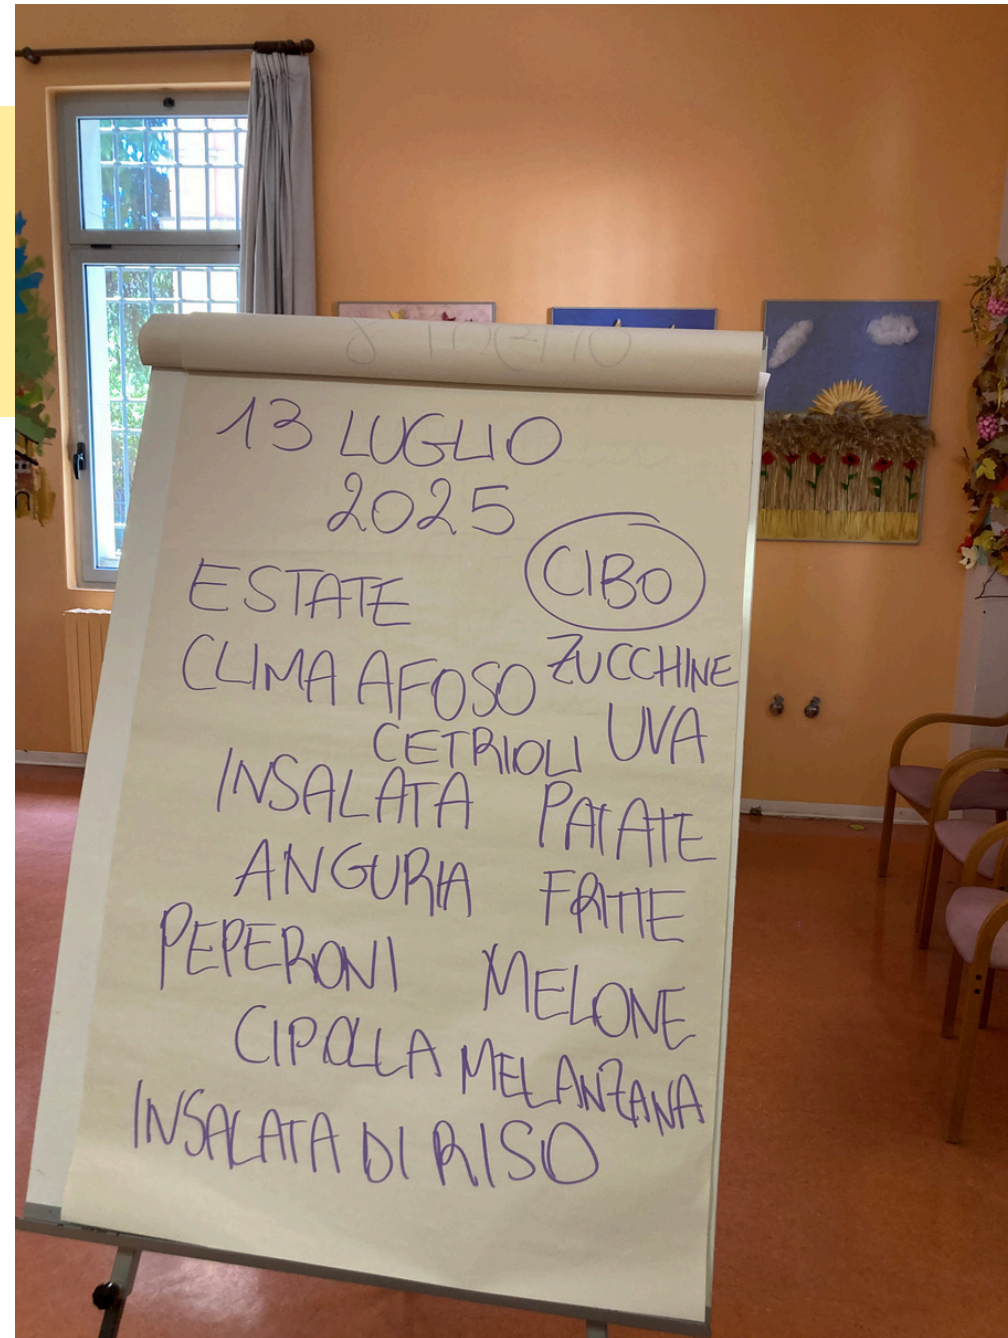 13 LUGLIO
2025
CIBO
ESTATE
ZUCCHINE
CLIMA AFOSO
UVA
CETRIOLI
INSALATA
PATATE
FRITTE
ANGURIA
PEPERONI
MELONE
CIPOLLA
MELANZANA
INSALATA DI RISO